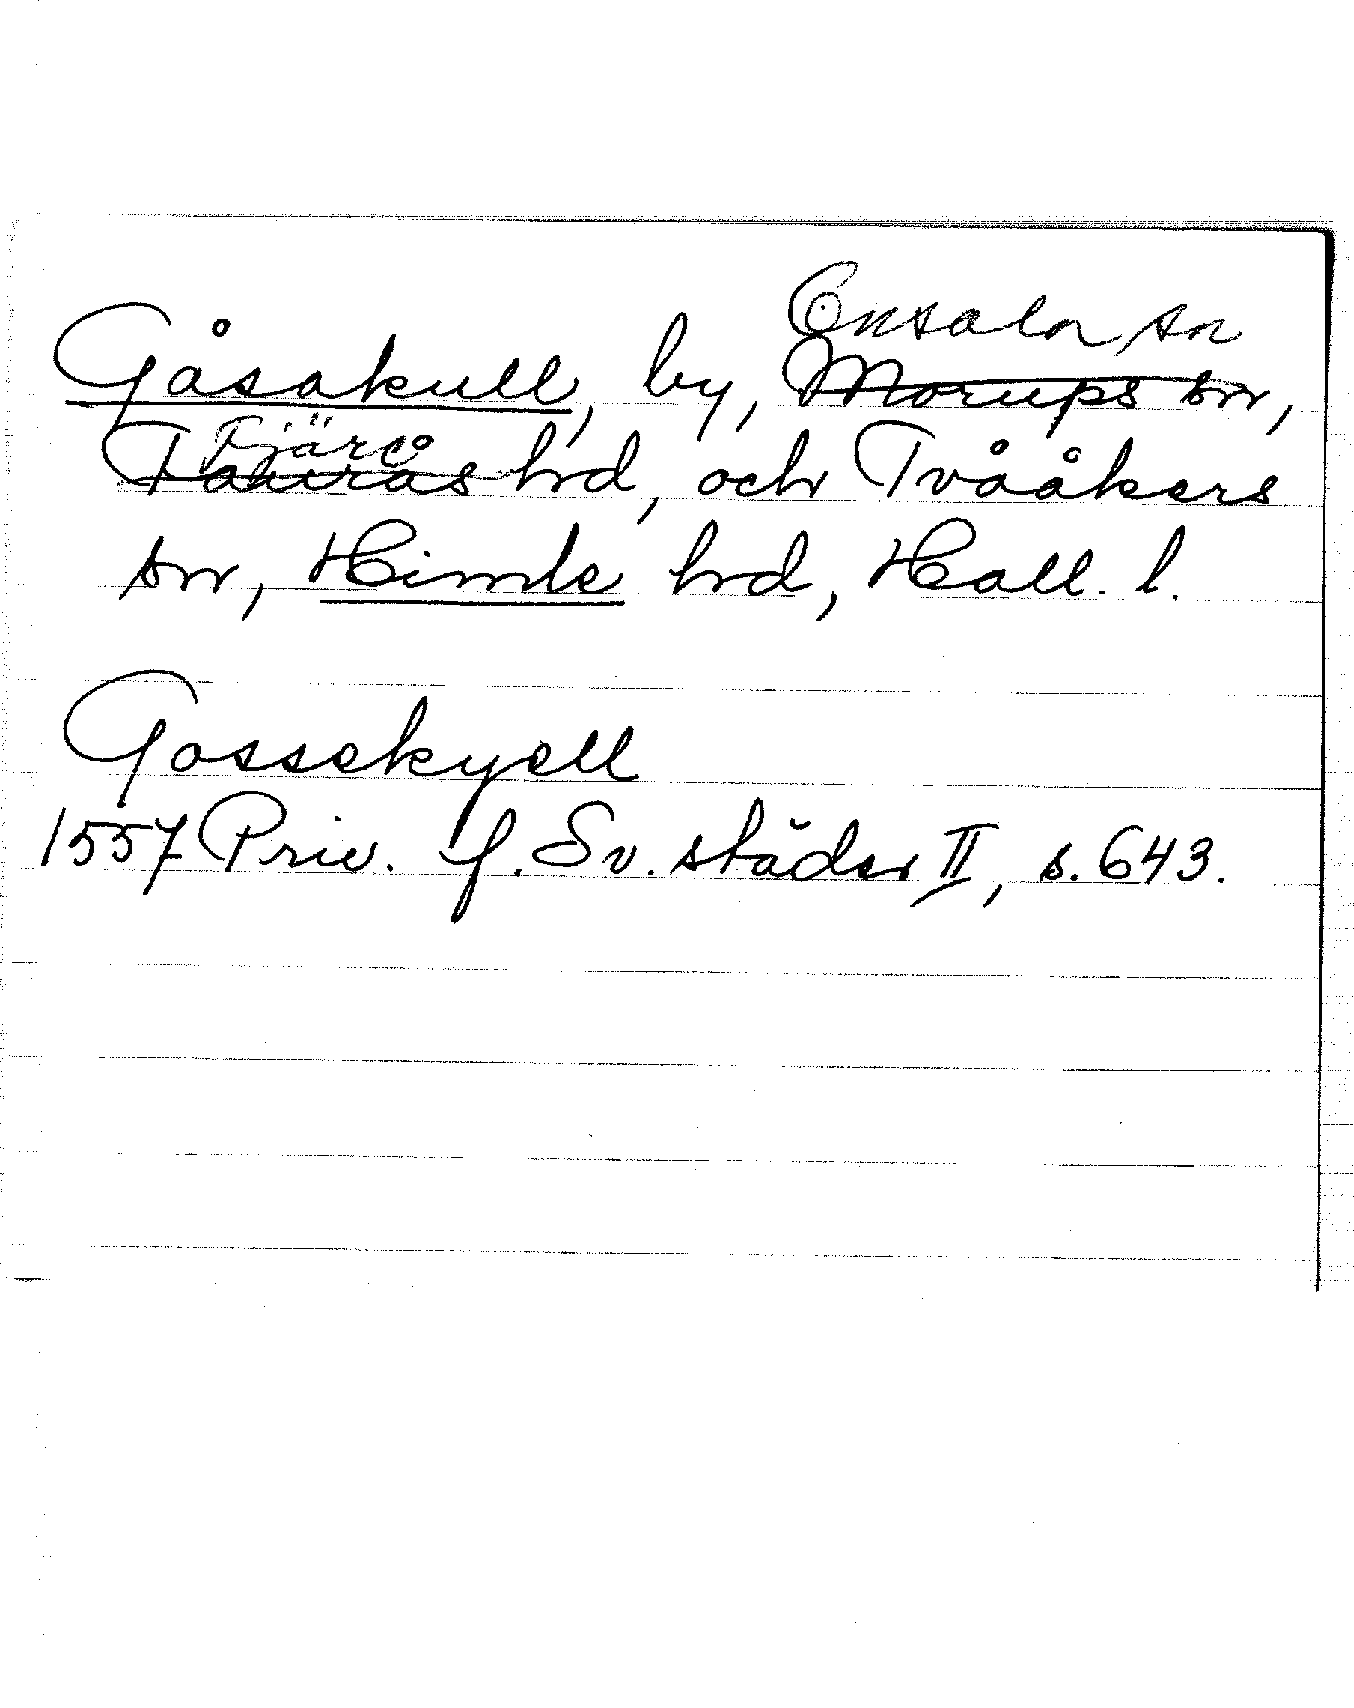 Onsala sn
Gåsakull, by, Morups sn,
Fjäre
Faurås hd, och Tvååkers
sn, Himle hd, Hall. l.
Gossekyell
1557 Priv. f. Sv. städer II, s. 643.